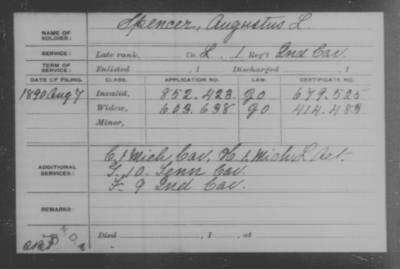 NAME OF SOLDIER: Spencer, Augustus L.
SERVICE: Late rank, Co. L, 1 Reg't 2nd Cav.
TERM OF SERVICE: Enlisted , 1 Discharged , 1
DATE OF FILING. CLASS. APPLICATION NO. LAW. CERTIFICATE NO.
1890 Aug 7 Invalid, 852.423 90 679.525
Widow, 603.638 90 414.483
Minor,
ADDITIONAL SERVICES: C, 1 Mich Cav. H 1 Mich L Art.
10 Tenn Cav.
F 9 Ind Cav.
REMARKS:
Died , 1 , at